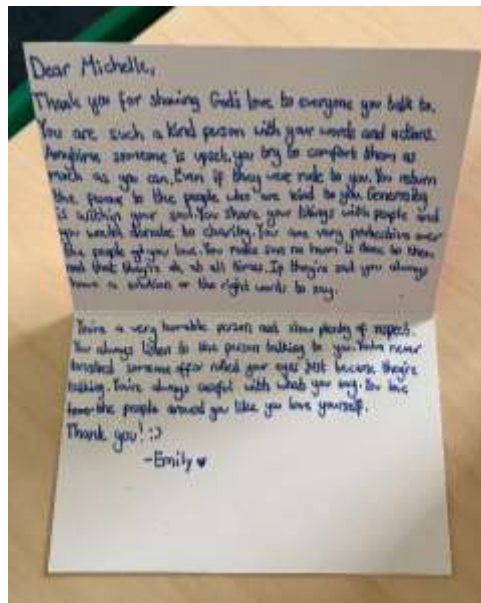 Dear Michelle,
Thank you for showing God's love to everyone you talk to.
You are such a kind person with your words and actions.
Anytime someone is upset, you try to comfort them as
much as you can, Even if they were rude to you. You return
the favour to the people who are kind to you. Generosity
is within your soul. You share your things with people and
you donate to charity. You are very protective over
the people you love. You make sure no harm is done to them
and that they're ok at all times. If they're sad you always
have a solution or the right words to say.
You're a very humble person and show plenty of respect.
You always listen to the person talking to you. You've never
brushed someone off or rolled your eyes just because they're
talking. You're always careful with what you say. You love
the people around you like you love yourself.
Thank you! :)
-Emily ♥